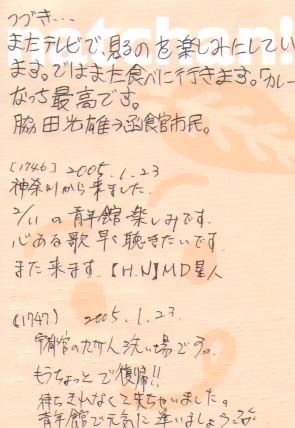 つづき・・・
またテレビで見るのを楽しみにしてい
ます。ではまた食べに行きます。カレー
なっち最高です。
脇田 雄 函館市民。
[1746] 2005.1.23
神奈川から来ました。
2/11の青年館楽しみです。
心ある歌早く聴きたいです。
また来ます。【H.N】MD星人
(1747) 2005.1.23.
洗い場でう。
もうちょっとで復帰!!
待ちきれなくて来ちゃいました。
青年館で元気に逢いましょう